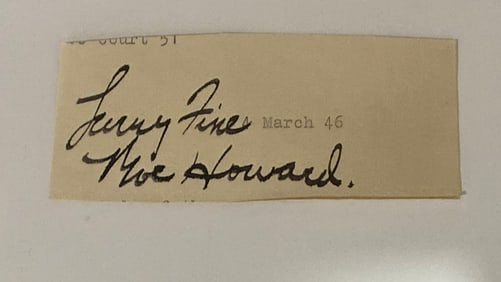 Court 51
Larry Fine 4 March 46
Moe Howard.